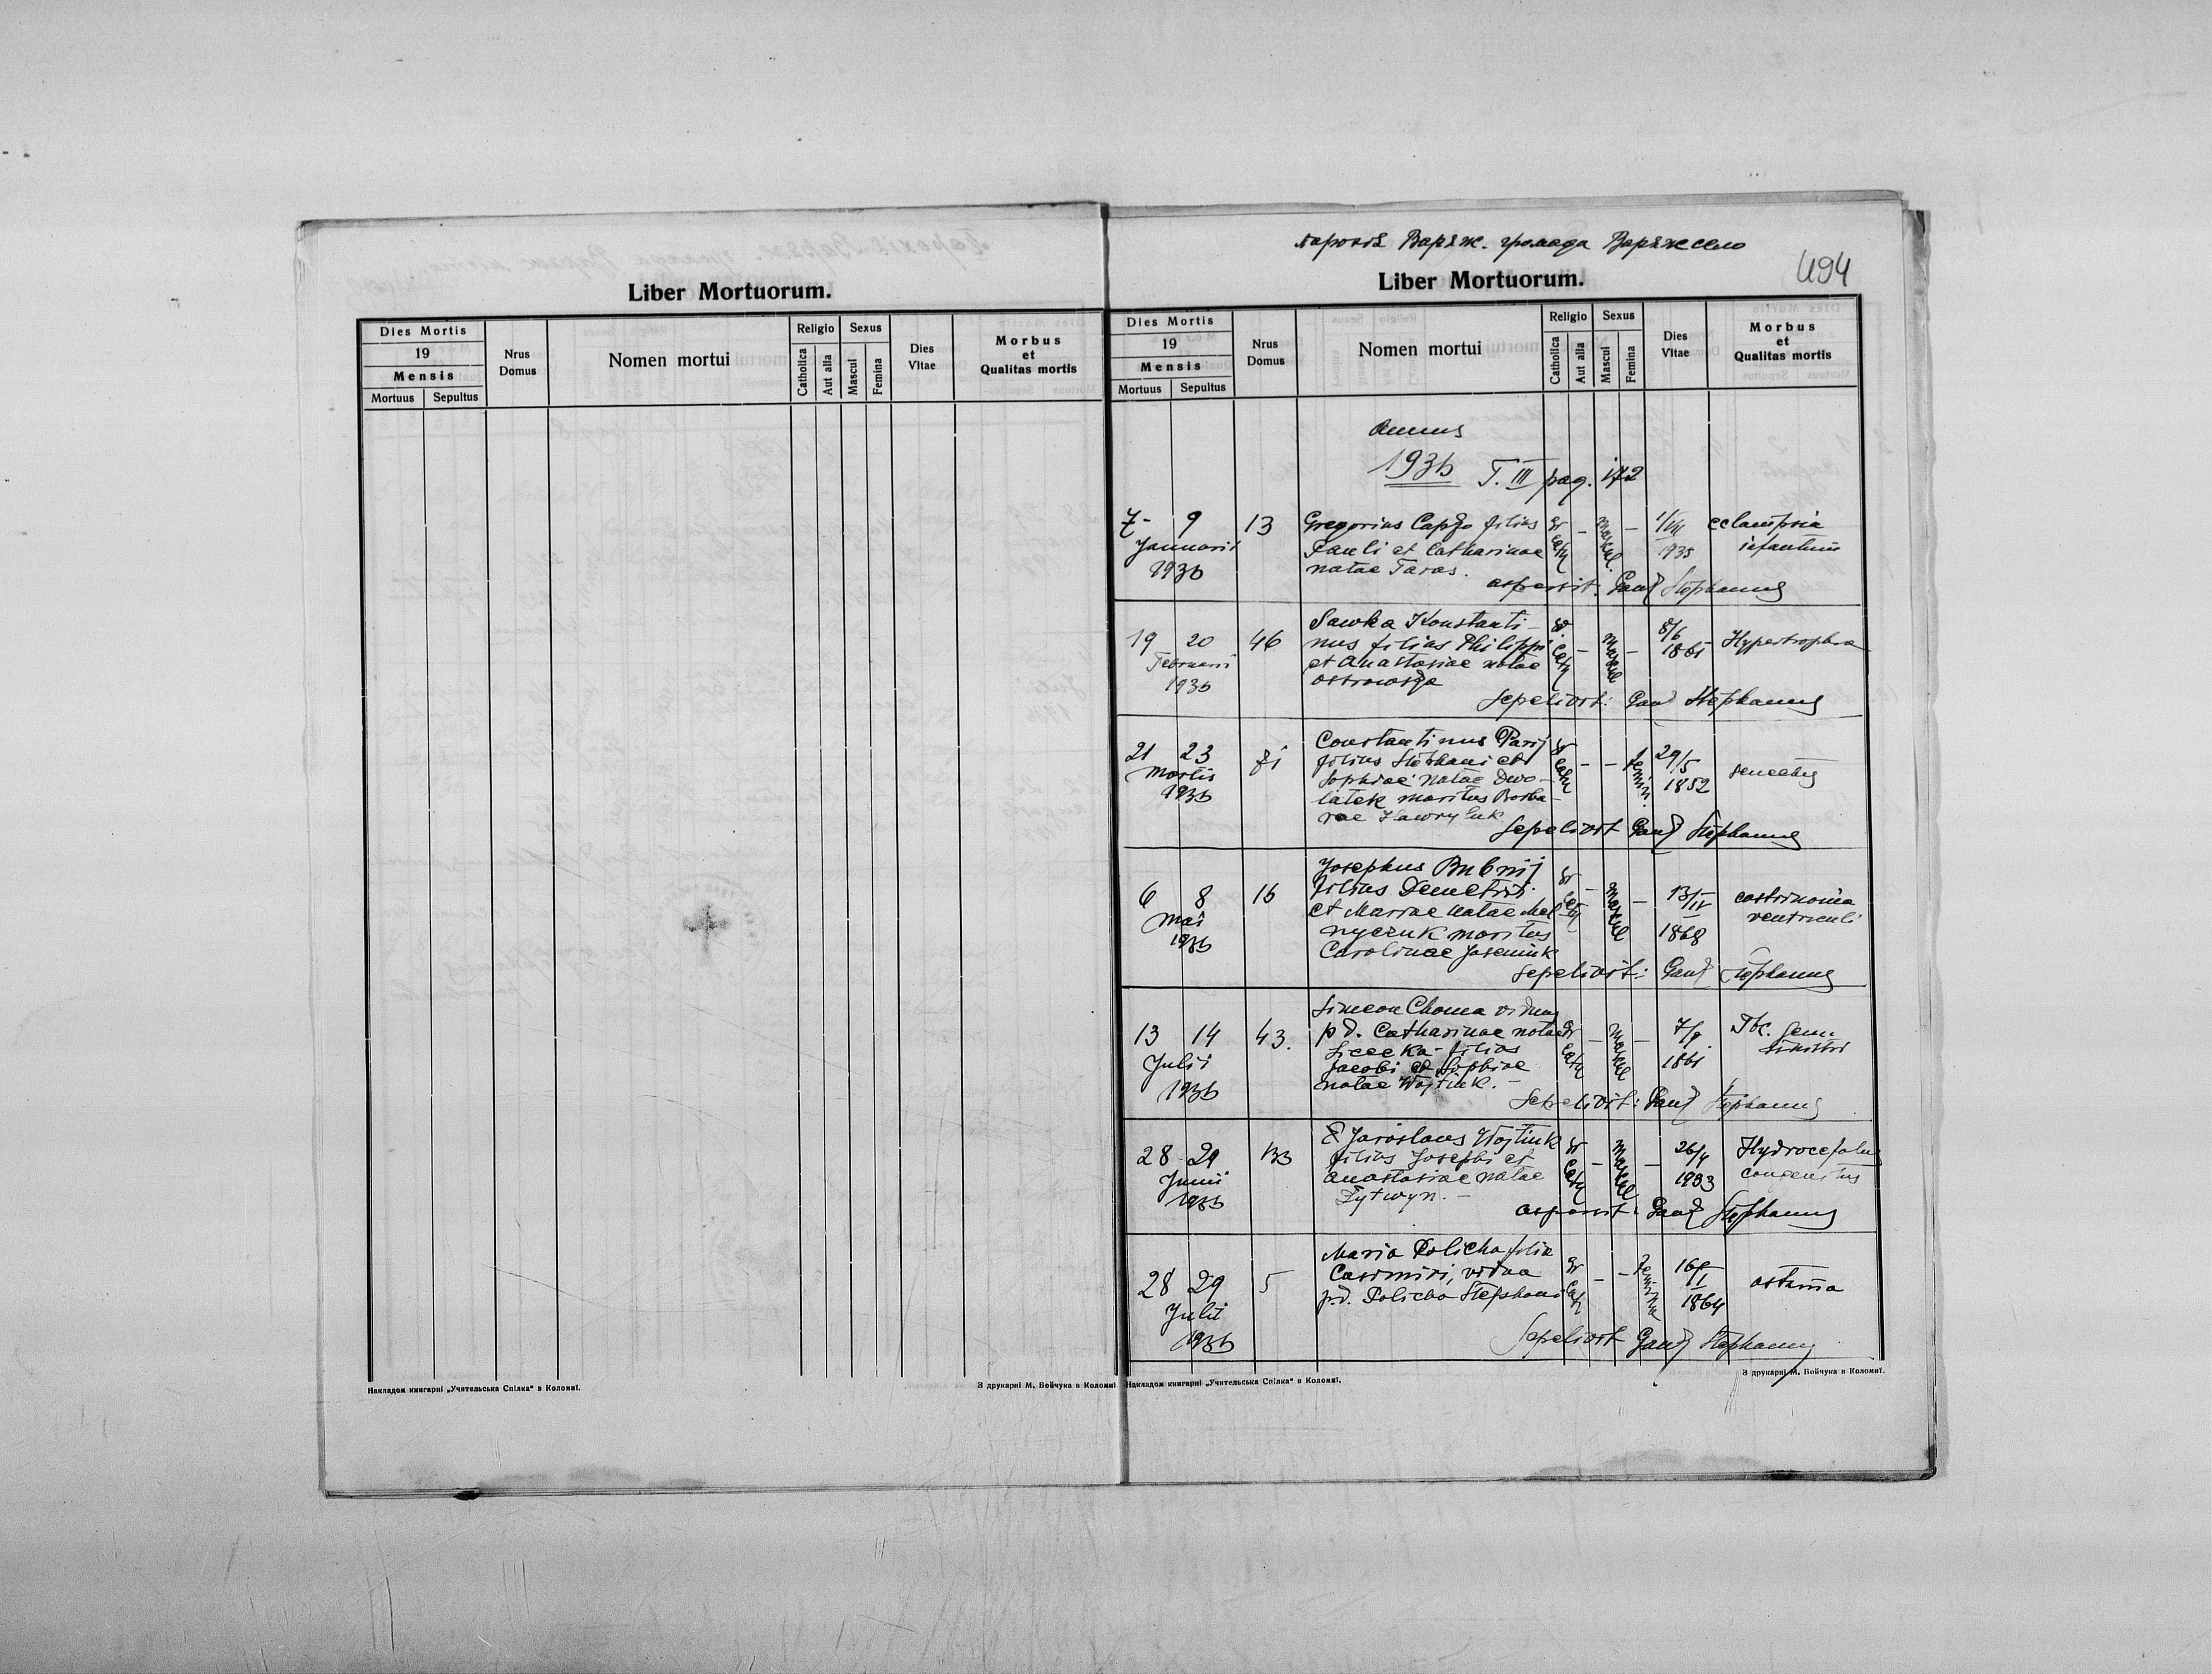 Liber Mortuorum.
Dies Mortis
19
Mensis
Mortuus Sepultus
Nrus
Domus
Nomen mortui
Religio
Catholica
Aut alia
Sexus
Mascul
Femina
Dies
Vitae
Morbus
et
Qualitas mortis
Накладом книгарні „Учительська Спілка“ в Коломиї.
З друкарні М. Бойчука в Коломиї
парохія Варяж. громада Варяж село
494
Liber Mortuorum.
Dies Mortis
19
Mensis
Mortuus Sepultus
Nrus
Domus
Nomen mortui
Religio
Catholica
Aut alia
Sexus
Mascul
Femina
Dies
Vitae
Morbus
et
Qualitas mortis
Annus
1936 T. III pag. 172
7 - 9
Januarii
1936
13
Gregorius filius
Pauli et Catharinae
natae Taras.
gr
cath
-
mascul.
-
1/VII
1935
eclampsia
infantum
aspersit. Stephanus
19 20
Februarii
1936
46
Sawka Konstanti-
nus filius Philippi
et Anastasiae natae
gr.
cath
-
mascul
-
8/6
1861
Hypertrophia
Sepelivit: Stephanus
21 23
Martis
1936
Constantinus Parij
filius Stephani et
Sophiae natae Dwo-
latek maritus Barba-
rae Hawryluk
gr
cath
- -
femin.
29/5
1852
senectus
Sepelivit Stephanus
6 8
Mai
1936
16
Josephus Bubnij
filius Demetrii
et Mariae natae Mel
nyczuk maritus
Carolinae
gr
cath
-
mascul
-
13/IV
1868
ventriculi
sepelivit: Stephanus
13 14
Julii
1936
43.
Simeon Choma viduus
p.d. Catharinae natae
filius
Jacobi et Sophiae
natae Wojtiuk. -
gr
cath
-
mascul
-
1861
Tbc. genu
sinistri
Sepelivit: Stephanus
28 29
Junii
1936
Jaroslaus Wojtiuk
filius Josephi et
Anastasiae natae
Lytwyn. -
gr
cath
-
mascul
-
26/4
1933
Hydrocefalus
congenitus
aspersit: Stephanus
28 29
Julii
1936
5
Maria Policha filia
Casimiri, vidua
p.d. Policha Stephani
gr
cath
- -
1864
astma
Sepelivit Stephanus
Накладом книгарні „Учительська Спілка“ в Коломиї.
З друкарні М. Бойчука в Коломиї.